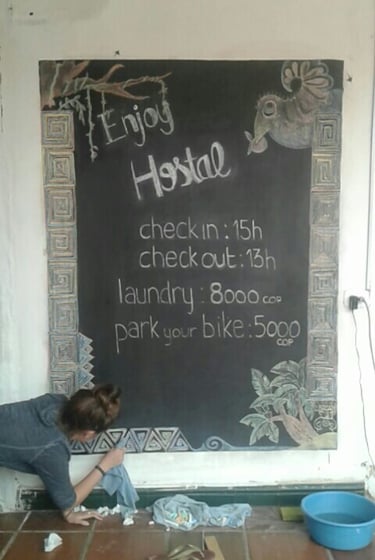 Enjoy
Hostal
check in : 15h
check out : 13h
laundry : 8000 COP
park your bike : 5000
COP